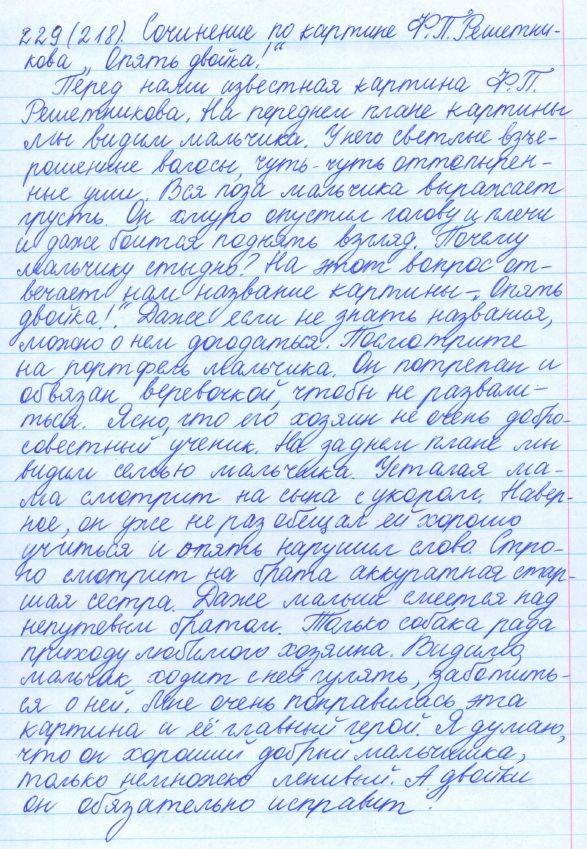 229(218). Сочинение по картине Ф.П. Решетни-
кова „Опять двойка!“
Перед нами известная картина Ф.П.
Решетникова. На переднем плане картины
мы видим мальчика. У него светлые взъе-
рошенные волосы, чуть-чуть оттопырен-
ные уши. Вся поза мальчика выражает
грусть. Он хмуро опустил голову и плечи
и даже боится поднять взгляд. Почему
мальчику стыдно? На этот вопрос от-
вечает нам название картины – „Опять
двойка!“. Даже если не знать названия,
можно о нем догадаться. Посмотрите
на портфель мальчика. Он потрепан и
обвязан веревочкой, чтобы не развали-
ться. Ясно, что его хозяин не очень добро-
совестный ученик. На заднем плане мы
видим семью мальчика. Усталая ма-
ма смотрит на сына с укором. Навер-
ное, он уже не раз обещал ей хорошо
учиться и опять нарушил слова. Стро-
го смотрит на брата аккуратная стар-
шая сестра. Даже малыш смеется над
непутевым братом. Только собака рада
приходу любимого хозяина. Видимо,
мальчик ходит с ней гулять, заботить-
ся о ней. Мне очень понравилась эта
картина и её главный герой. Я думаю,
что он хороший добрый мальчишка,
только немножко ленивый. А двойки
он обязательно исправит!